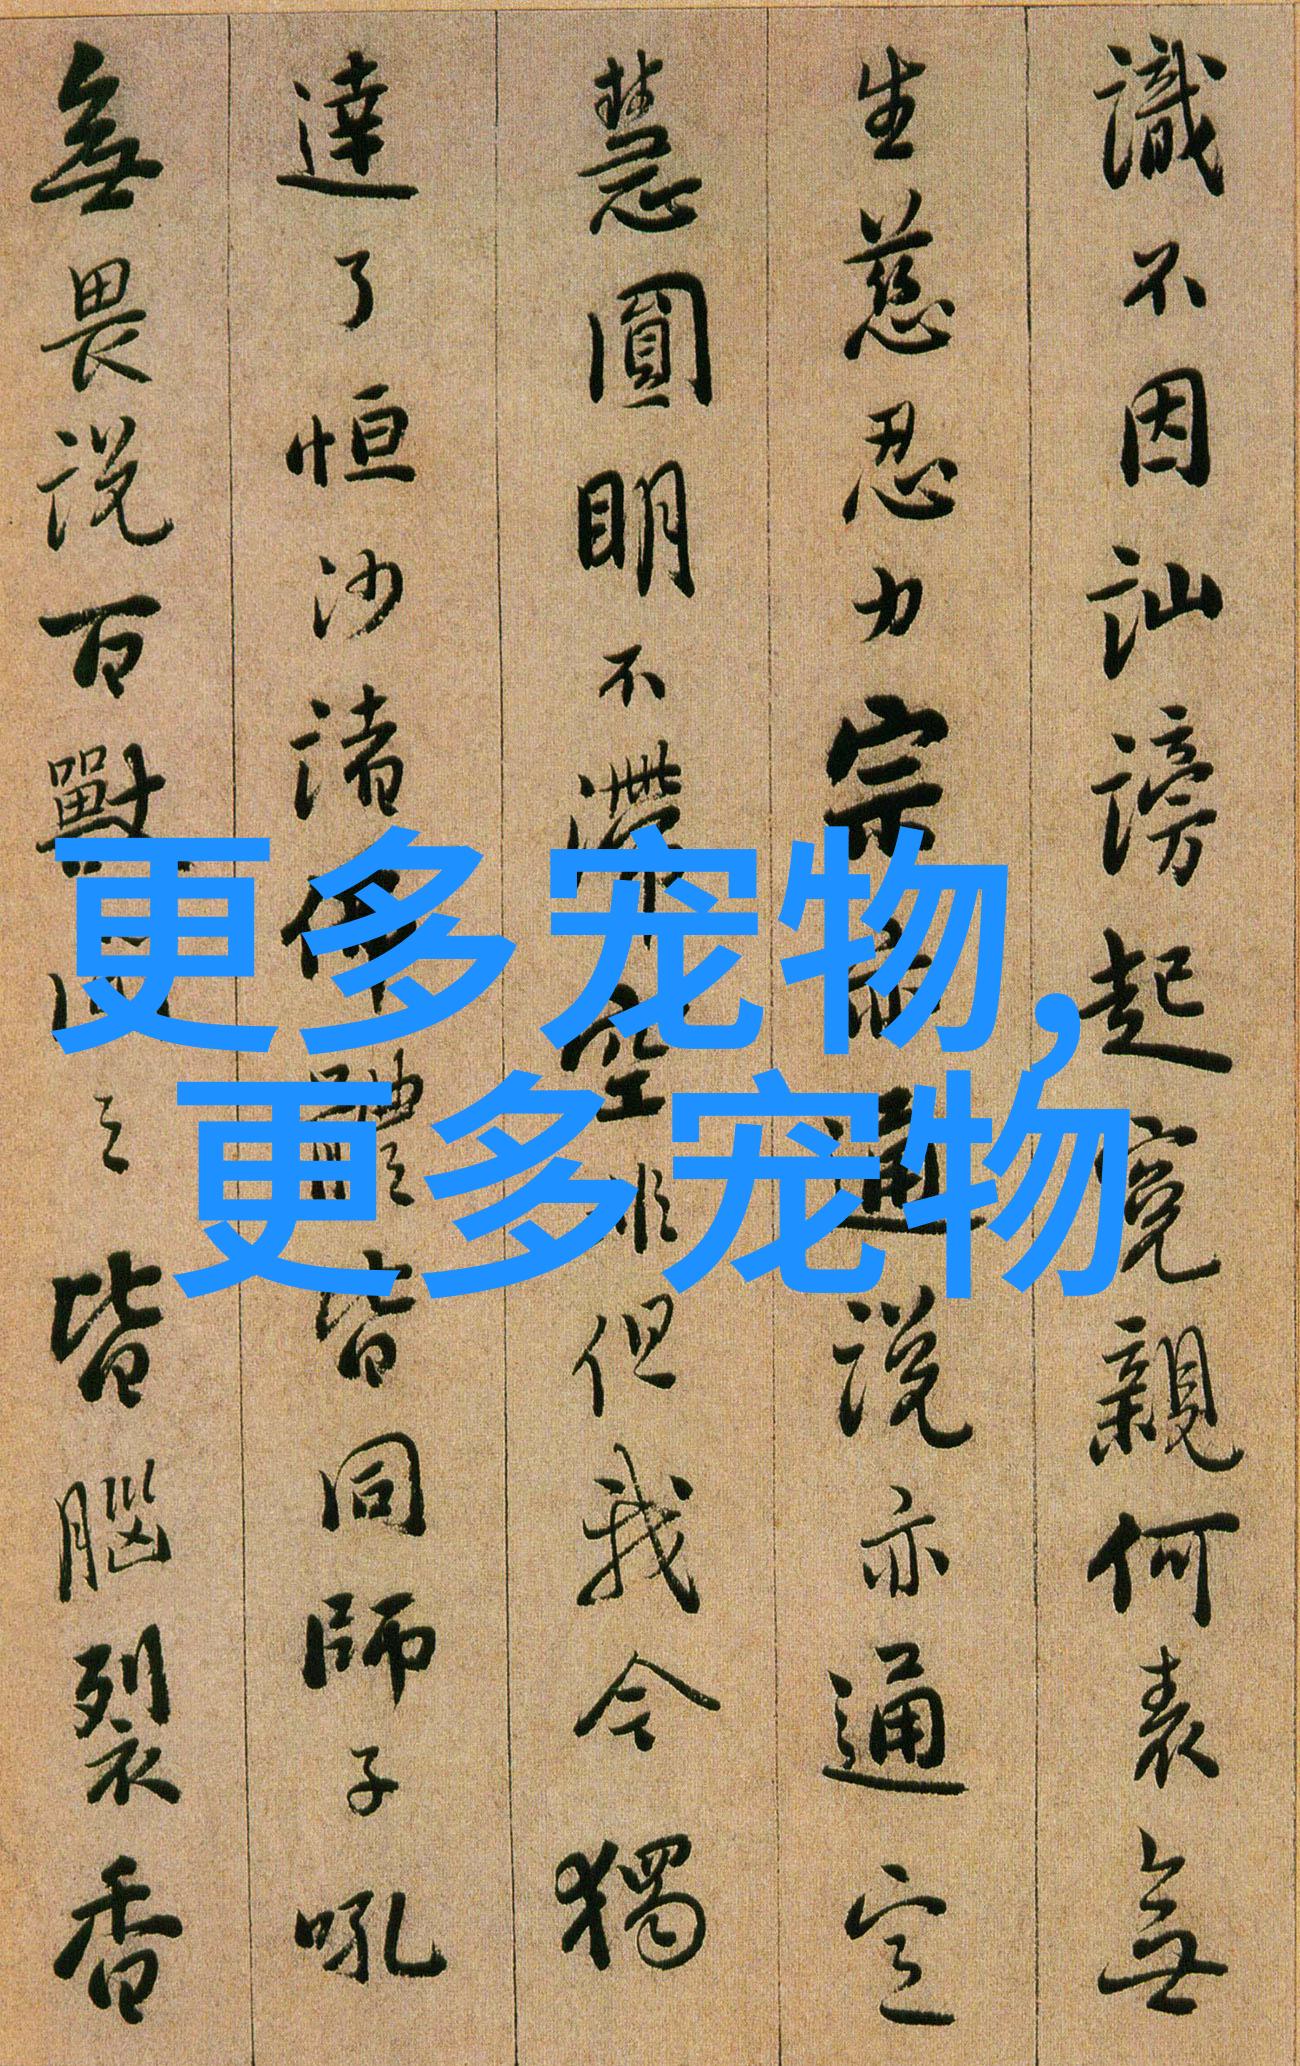 識不因訕謗起寃親何表無
生慈忍力宗亦通説亦通定
慧圓明不滯空非但我今獨
達了恒沙諸佛體皆同師子吼
無畏説百獸聞之皆腦裂香
更多宠物,
更多宠物